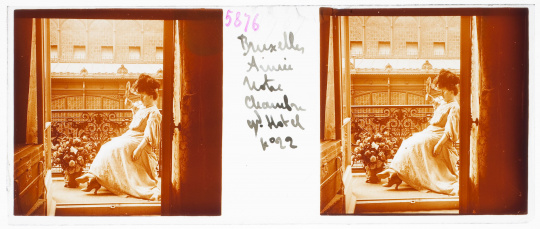 5876
Bruxelles
Aimée
Notre
Chambre
gd Hotel
n° 22